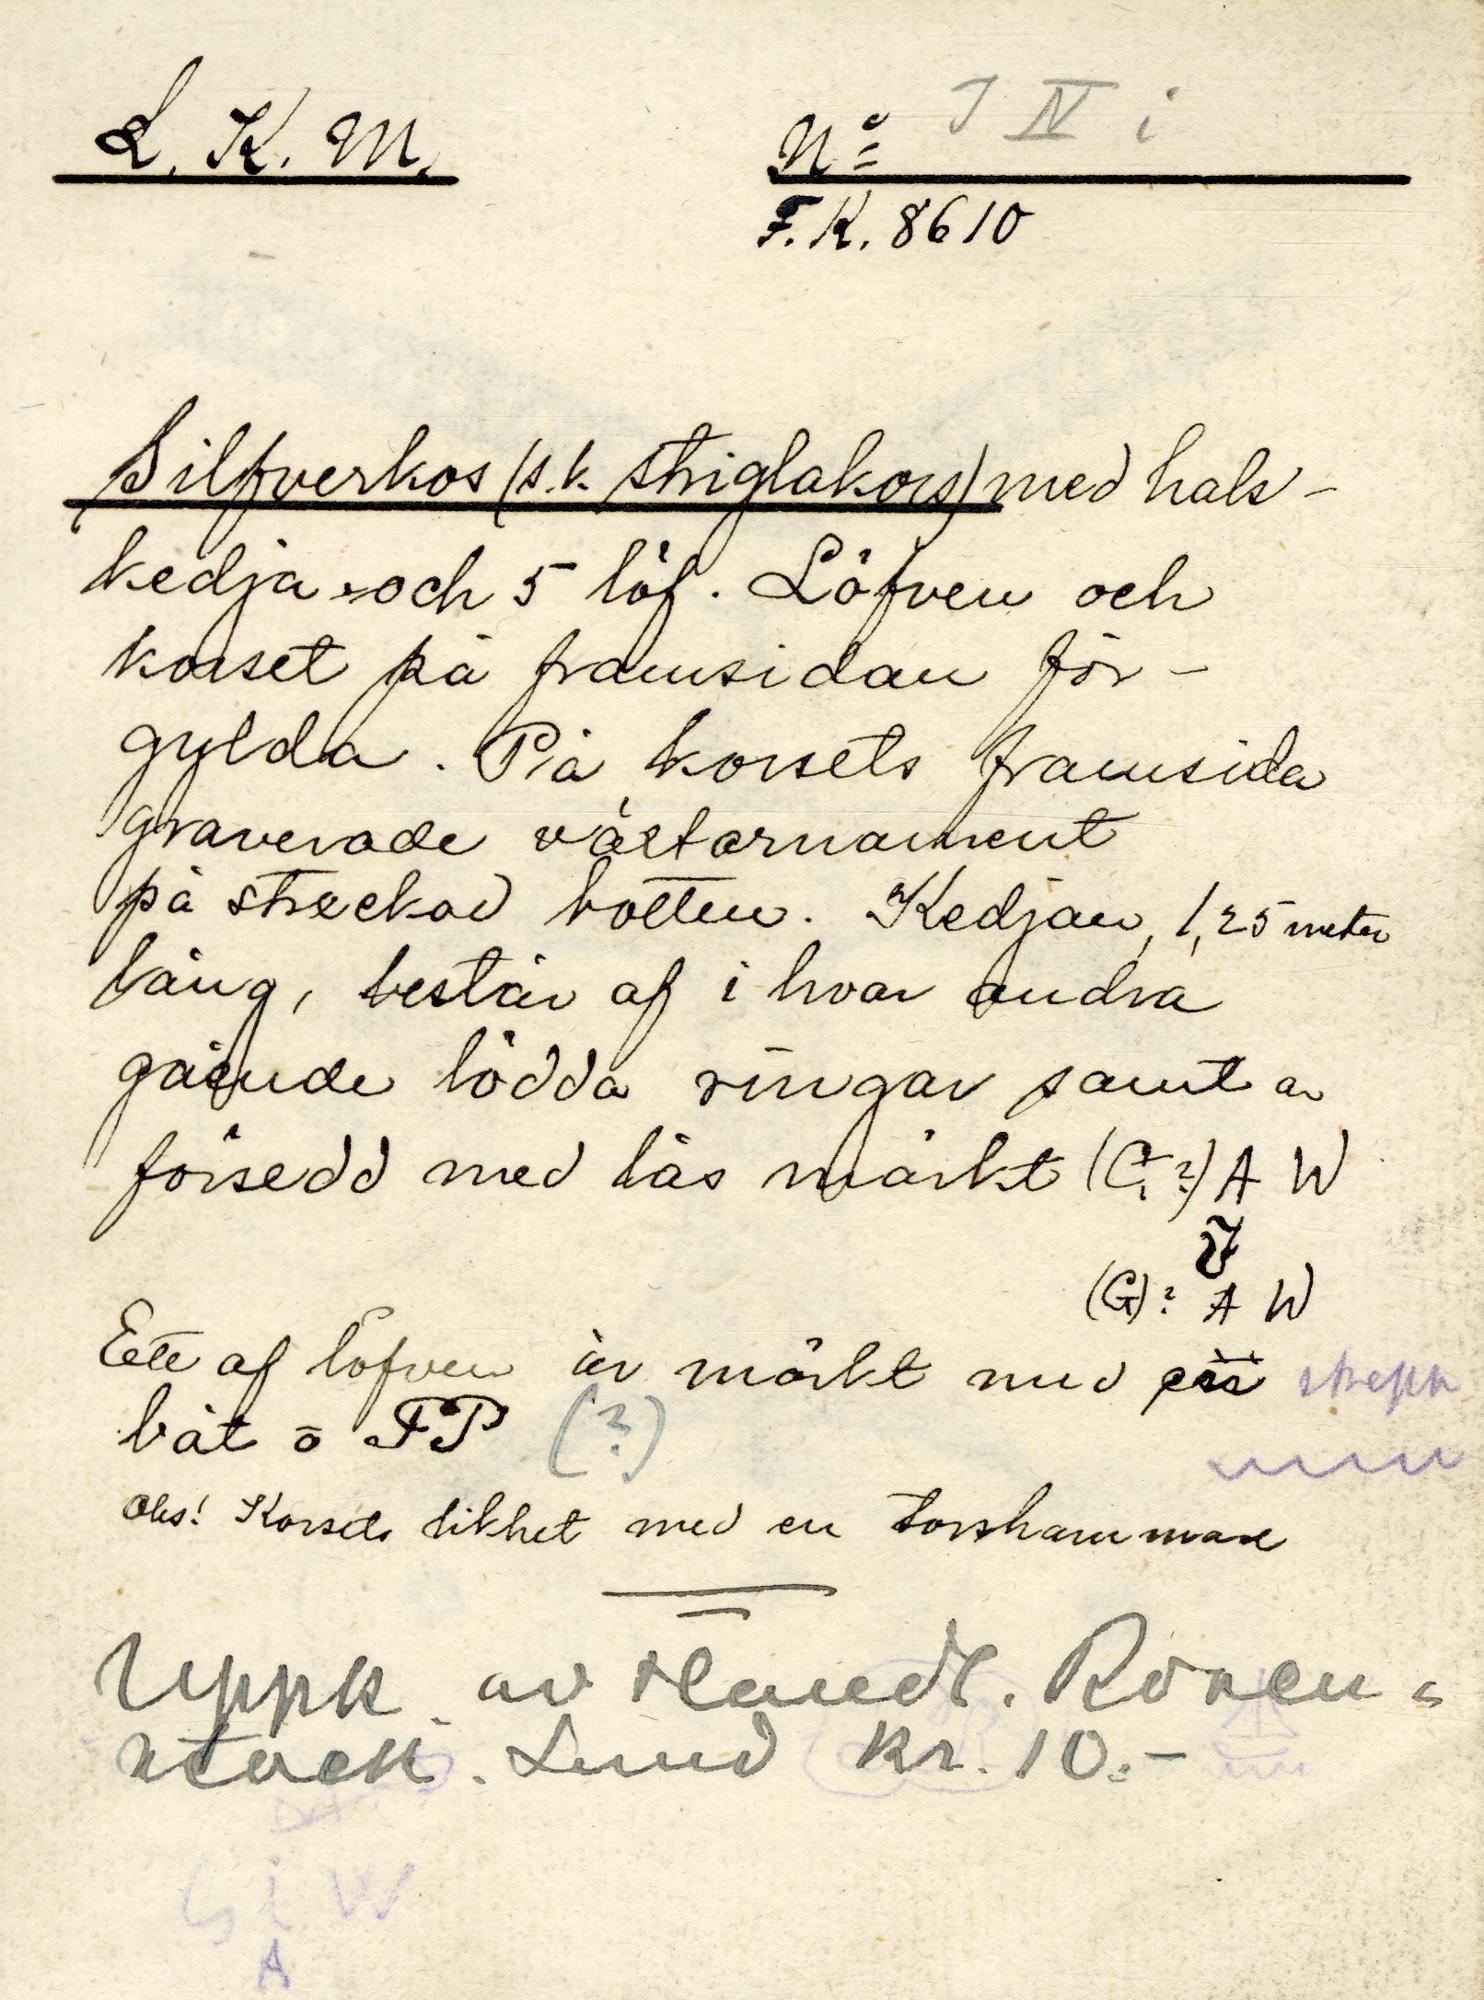 L. K. M. No I IV i
F.K. 8610
Silfverkos (s.k. striglakors) med hals-
kedja och 5 löf. Löfven och
korset på framsidan för-
gylda. På korsets framsida
graverade växtornament
på streckad botten. Kedjan, 1,25 meter
lång, består af i hvar andra
gående lödda ringar samt
försedd med lås märkt (G?) A W
(G)? A W
Ett af löfven är märkt med skepp
båt o FP (?)
Obs! Korsets likhet med en torshammare
Uppk. av Handl. Rosen-
stock. Lund Kr. 10.-
G i W
A